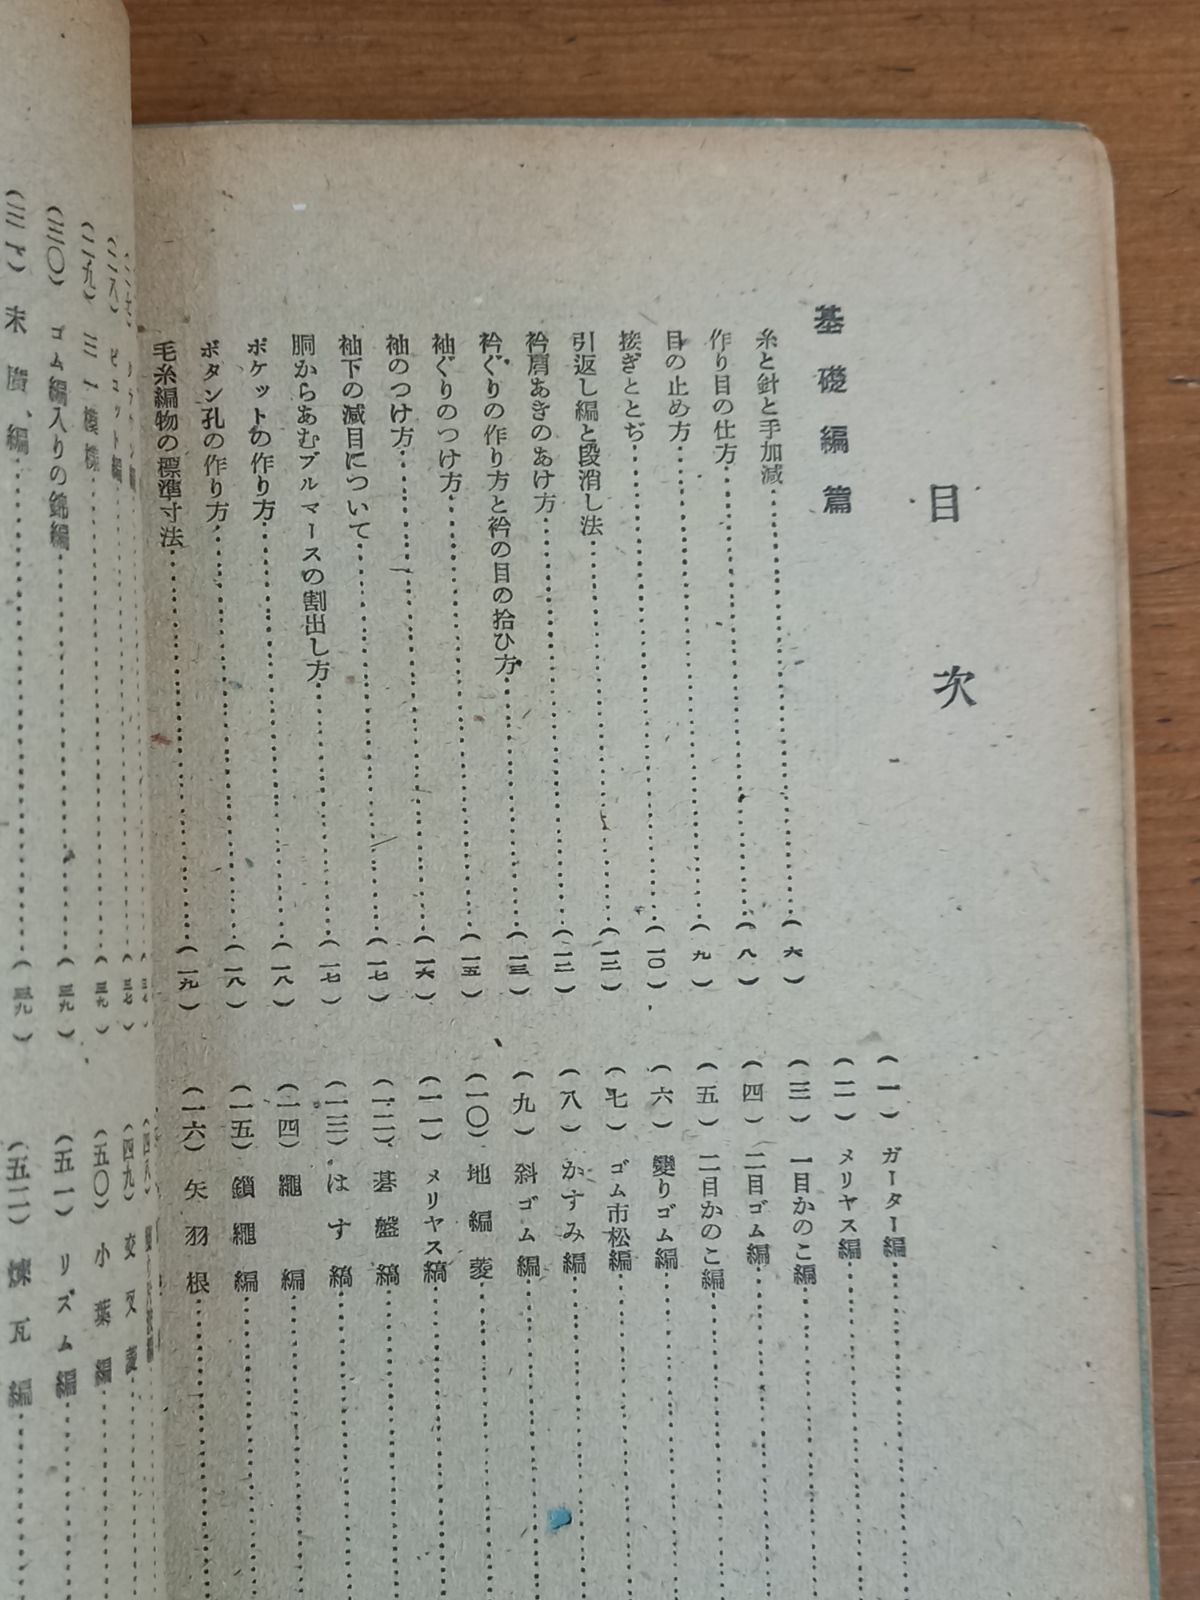 目次
基礎編篇
糸と針と手加減……(六)
作り目の仕方……(八)
目の止め方……(九)
接ぎととぢ……(一〇)
引返し編と段消し法……(一二)
衿肩あきのあけ方……(一二)
衿ぐりの作り方と衿の目の拾ひ方……(一三)
袖ぐりのつけ方……(一五)
袖のつけ方……(一六)
袖下の減目について……(一七)
胴からあむブルマースの割出し方……(一七)
ポケットの作り方……(一八)
ボタン孔の作り方……(一八)
毛糸編物の標準寸法……(一九)
(一)ガーター編……
(二)メリヤス編……
(三)一目かのこ編……
(四)二目ゴム編……
(五)二目かのこ編……
(六)變りゴム編……
(七)ゴム市松編……
(八)かすみ編……
(九)斜ゴム編……
(一〇)地編菱……
(一一)メリヤス縞……
(一二)碁盤縞……
(一三)はす縞……
(一四)繩編……
(一五)鎖繩編……
(一六)矢羽根……
(二八)ピコット編……(三七)
(二九)三一模様……(三九)
(三〇)ゴム編入りの鎬編……(三九)
(三一)末廣編……(三九)
(四九)交叉菱……
(五〇)小葉編……
(五一)リズム編……
(五二)煉瓦編……